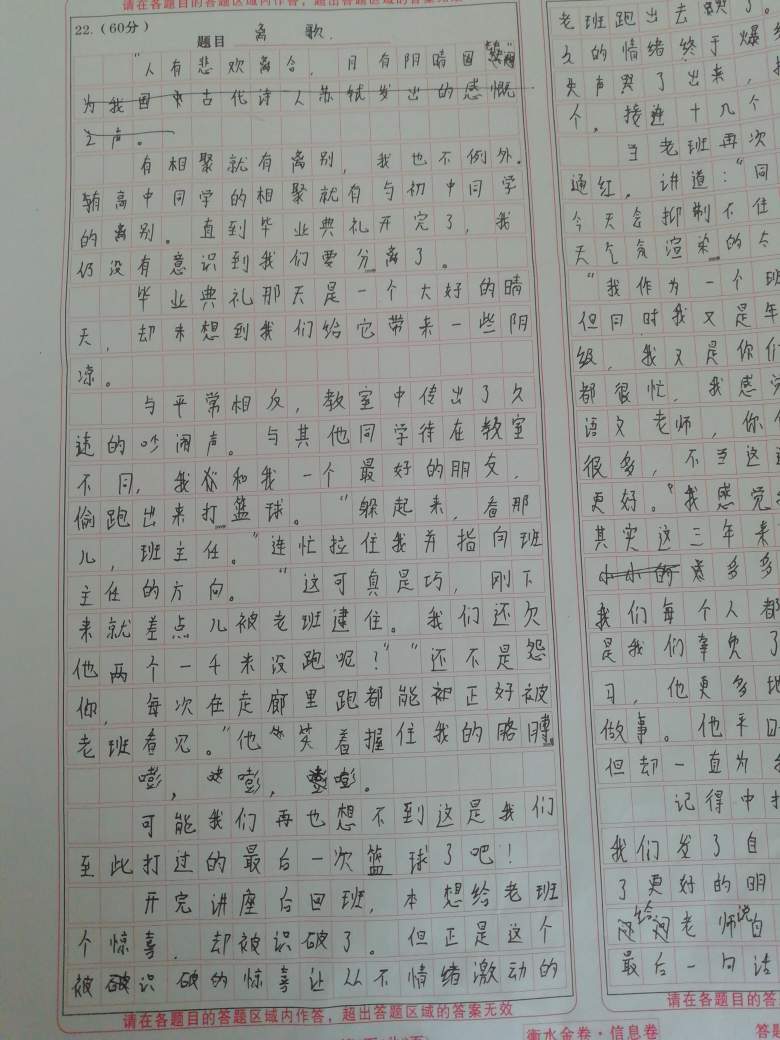 请在各题目的答题区域内作答，超出答题区域的答案无效
22.（60分）
题目 离歌
"人有悲欢离合，月有阴晴圆缺"
为我国古代诗人苏轼发出的感慨
之声。
有相聚就有离别，我也不例外。
有高中同学的相聚就有与初中同学
的离别。直到毕业典礼开完了，我
仍没有意识到我们要分离了。
毕业典礼那天是一个大好的晴
天，却未想到我们给它带来一些阴
凉。
与平常相反，教室中传出了久
违的吵闹声。与其他同学待在教室
不同，我和我一个最好的朋友，
偷跑出来打篮球。"躲起来，看那
儿，班主任。"连忙拉住我并指向班
主任的方向。"这可真是巧，刚下
来就差点儿被老班逮住。我们还欠
他两个一千米没跑呢？""还不是怨
你，每次在走廊里跑都能正好被
老班看见。"他笑着握住我的胳膊
嘭，嘭，嘭。
可能我们再也想不到这是我们
至此打过的最后一次篮球了吧！
开完讲座后回班，本想给老班
个惊喜，却被识破了。但正是这个
被识破的惊喜让从不情绪激动的
请在各题目的答题区域内作答，超出答题区域的答案无效
老班跑出去哭了。
久的情绪终于爆
失声哭了出来，
个，接连十几个
当老班再次
通红，讲道："同
今天会抑制不住
天气氛渲染的
"我作为一个班
但同时我又是年
级，我又是你们
都很忙，我感
语文老师，你
很多，不当这
更好。"我感觉
其实这三年来
多多
我们每个人都
是我们辜负了
习，他更多地
做事。他平日
但却一直为
记得中
我们发了自
了更好的明
给老师说
最后一句话
请在各题目的答
衡水金卷·信息卷
答题